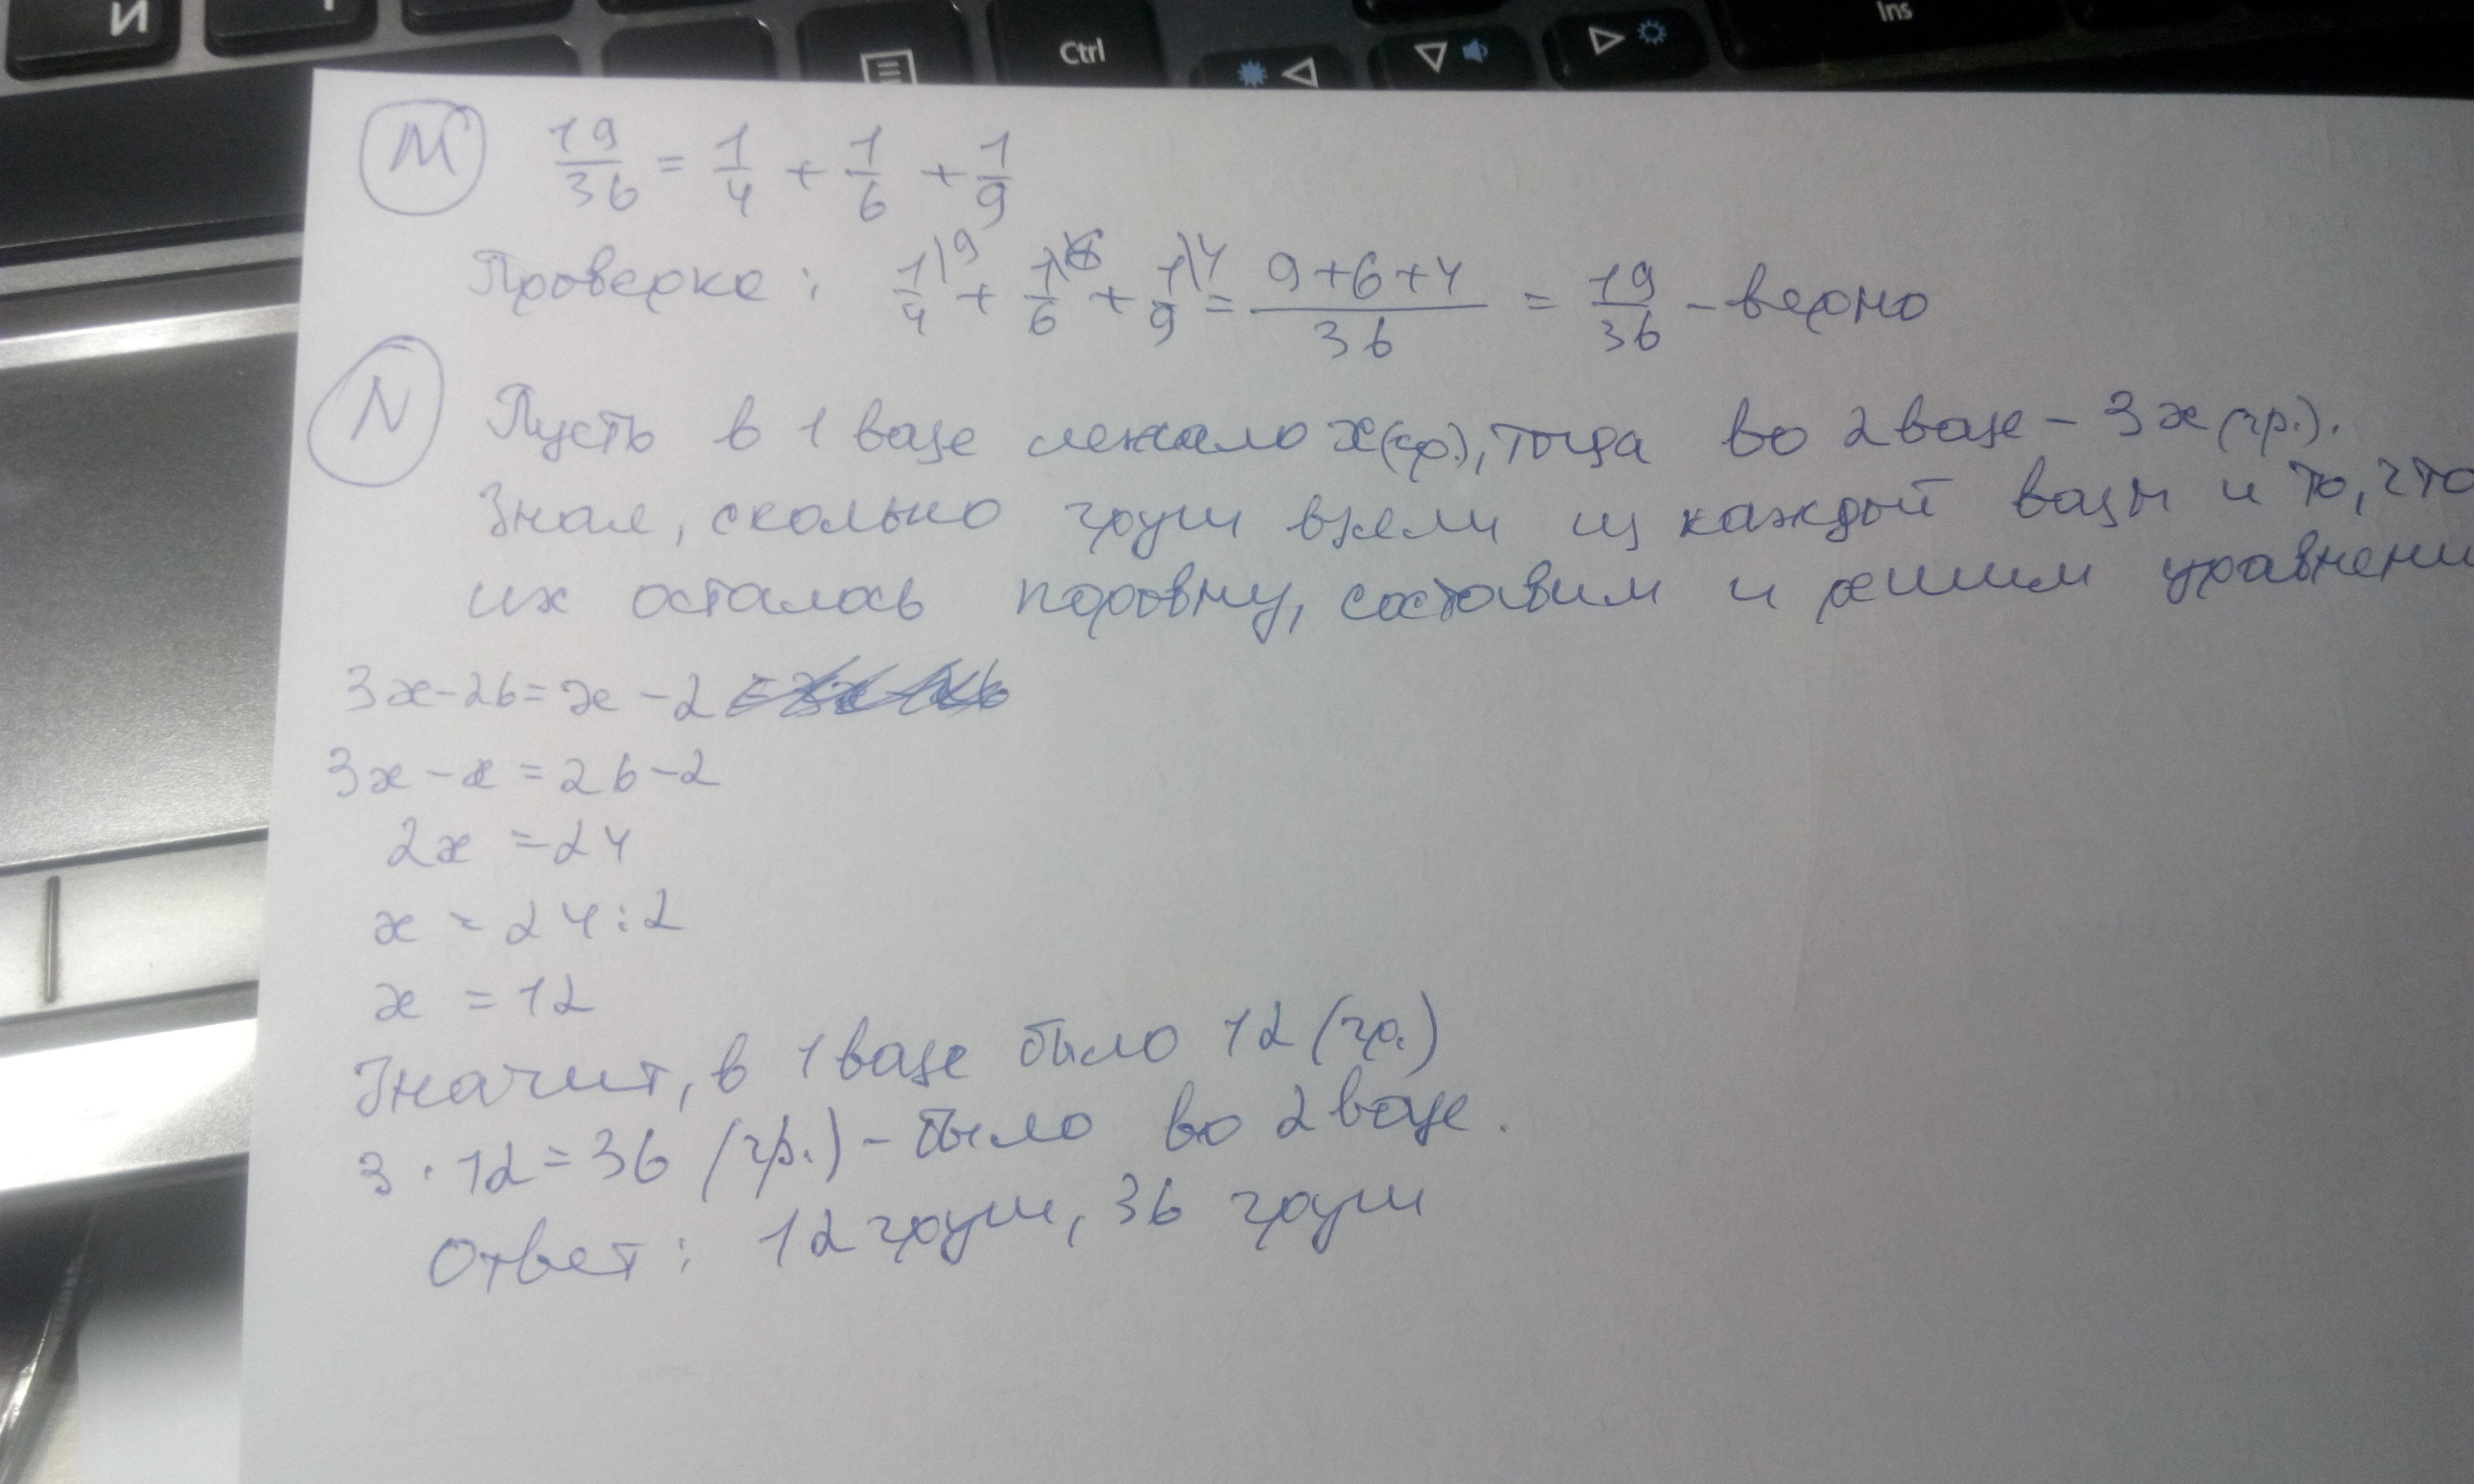 И
Ctrl
Ins
М 19/36 = 1/4 + 1/6 + 1/9
Проверка: 1\9/4 + 1\6/6 + 1\4/9 = 9+6+4/36 = 19/36 - верно
N Пусть в 1 вазе лежало x(гр.), тогда во 2 вазе - 3x (гр.).
Зная, сколько груш взяли из каждой вазы и то, что
их осталось поровну, составим и решим уравнени
3x-26=x-2
3x-x=26-2
2x=24
x=24:2
x=12
Значит, в 1 вазе было 12 (гр.)
3·12=36 (гр.) - было во 2 вазе.
Ответ: 12 груш, 36 груш